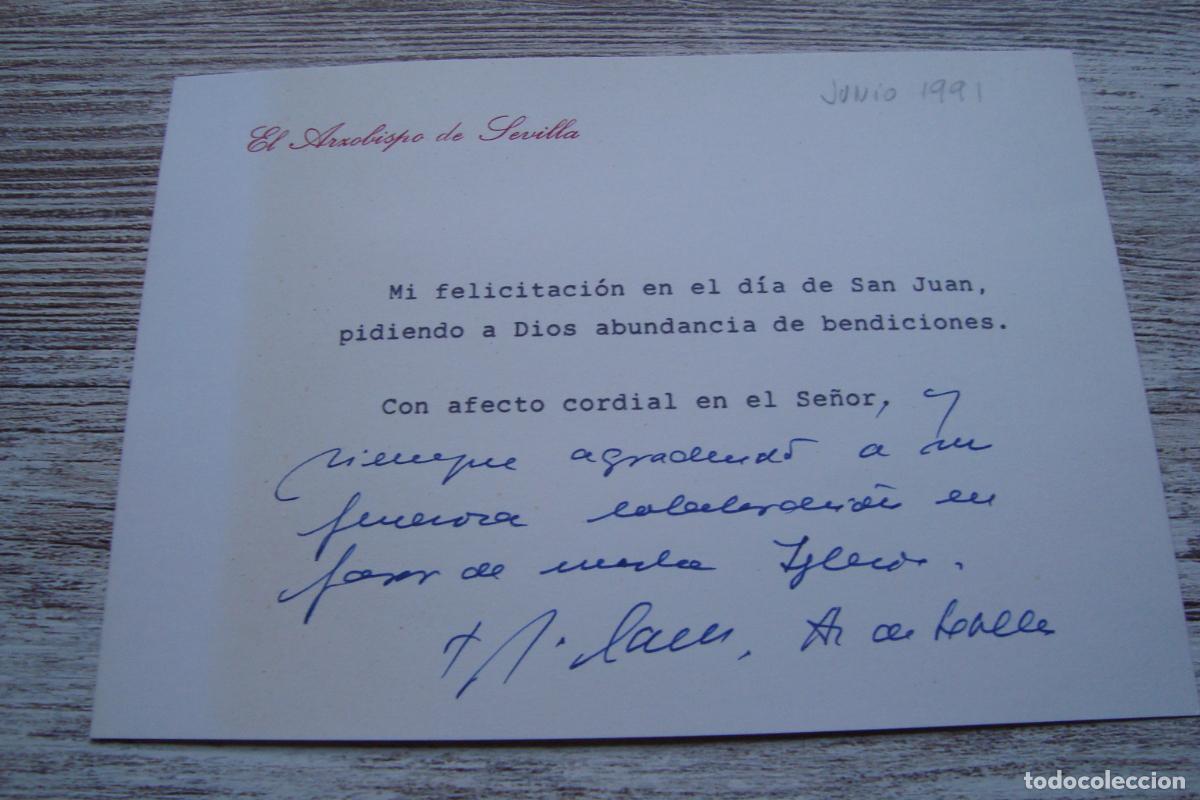 JUNIO 1991
El Arzobispo de Sevilla
Mi felicitación en el día de San Juan,
pidiendo a Dios abundancia de bendiciones.
Con afecto cordial en el Señor, y
siempre agradecido a su
generosa colaboración en
favor de nuestra Iglesia.
+ Ar. de Sevilla
todocoleccion